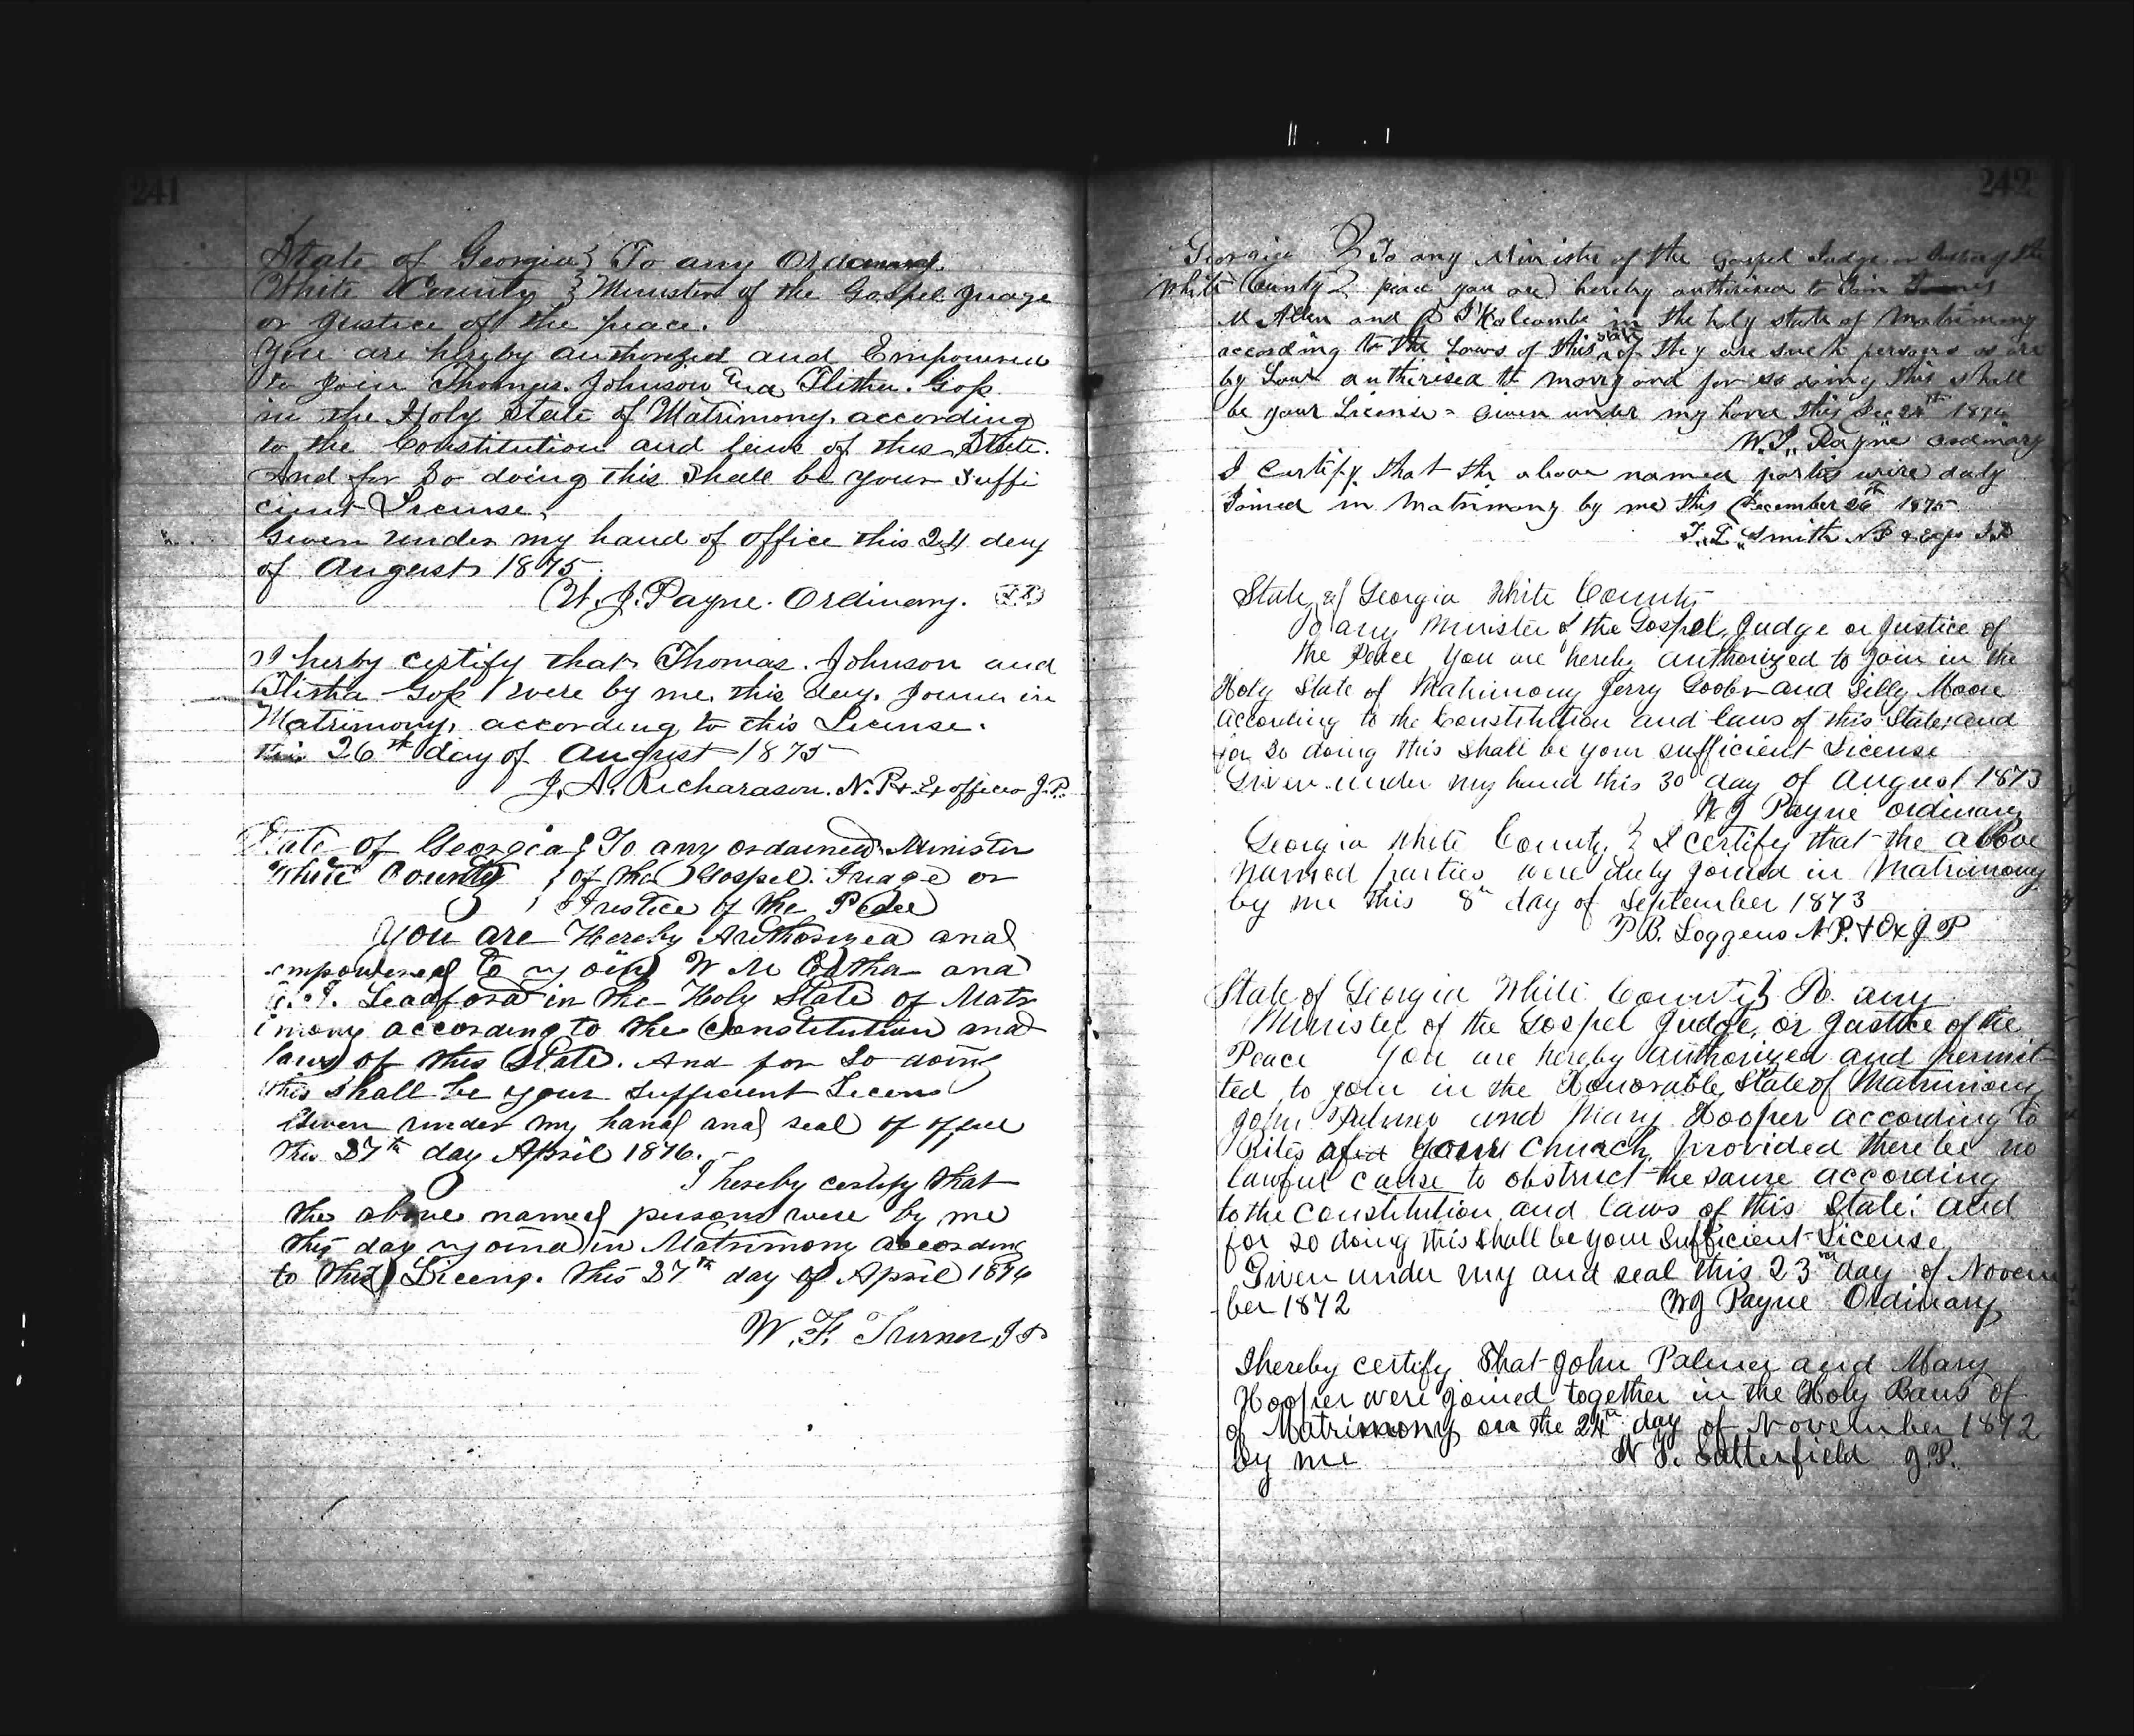 241
State of Georgia } To any Ordained
White County } Minister of the Gospel Judge
or Justice of the peace.
You are hereby authorized and Empowered
to join Thomas. Johnson and Elisha. Goss
in the Holy State of Matrimony. according
to the Constitution and laws of this State.
And for So doing this Shall be your Suffi
cient License.
Given under my hand of office this 24 day
of August 1875
W. J. Payne. Ordinary. (L.S.)
I herby certify that Thomas. Johnson and
Elisha Goss were by me. this day. joined in
Matrimony, according to this License.
this 26th day of August 1875
J. A. Richardson. N. P. & Ex officio J. P.
State of Georgia } To any ordained Minister
White County } of the Gospel. Judge or
} Justice of the Peace
You are Hereby Authorized and
empowered to join W M and
Leadford in the Holy State of Matr
imony according to the Constitution and
laws of this State. And for So doing
this shall be your sufficient Licens
Given under my hand and seal of office
this 27th day April 1876.
I hereby certify that
the above named persons were by me
this day joind in Matrimony according
to this Licens. this 27th day of April 1876
W. F. Turner J P
242
Georgia } To any Minister of the Gospel Judge or Justice of the
White County } peace you are hereby authorised to Join
M Allen and in the holy state of Matrimony
according to the Laws of this State if they are such persons as are
by Law authorised to marry and for so doing this shall
be your License = Given under my hand this Dec 24th
W. J. Payne ordinary
I certify that the above named parties were duly
Joined in matrimony by me this December 26th 1875
Smith N P & Exf J P
State of Georgia White County
To any Minister of the Gospel, Judge or Justice of
the Peace you are hereby authorized to Join in the
Holy State of Matrimony Jerry Goober and Silly Moore
according to the Constitution and laws of this State, and
for so doing this shall be your sufficient License
Given under my hand this 30 day of August 1873
W J Payne ordinary
Georgia White County } I certify that the above
Named parties were duly joined in Matrimony
by me this 8th day of September 1873
P B. Loggens N P. & Ex J P
State of Georgia White County } To any
Minister of the Gospel Judge, or Justice of the
Peace You are hereby authorized and permit-
ted to join in the Honorable State of Matrimony
John Palmer and Mary Hooper according to
Rites of your Church, provided there be no
lawful cause to obstruct the same according
to the constitution and laws of this State: and
for so doing this shall be your Sufficient License
Given under my and seal this 23rd day of Novem
ber 1872 W J Payne Ordinary
I hereby certify That John Palmer and Mary
Hooper were joined together in the Holy Bans of
of Matrimony on the 24th day of November 1872
by me N F. Satterfield J. P.